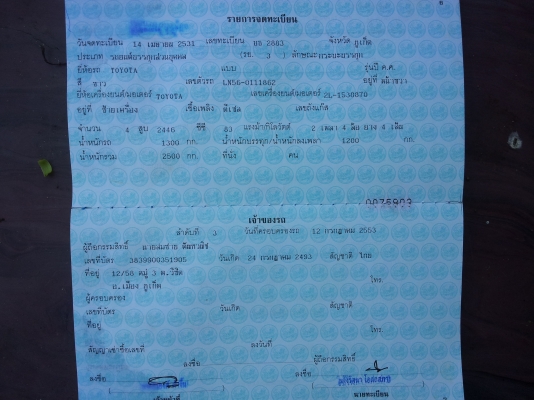 รายการจดทะเบียน
วันจดทะเบียน 14 เมษายน 2531 เลขทะเบียน 2883 จังหวัด ภูเก็ต
ประเภท รถยนต์บรรทุกส่วนบุคคล (รย. 3 ) ลักษณะ กระบะบรรทุก
ยี่ห้อรถ TOYOTA แบบ รุ่นปี ค.ศ.
สี ขาว เลขตัวรถ LN56-0111862 อยู่ที่
ยี่ห้อเครื่องยนต์/มอเตอร์ TOYOTA เลขเครื่องยนต์/มอเตอร์ 2L-1530870
อยู่ที่ ซ้ายเครื่อง เชื้อเพลิง ดีเซล เลขถังแก๊ส
จำนวน 4 สูบ 2446 ซีซี 83 แรงม้า/กิโลวัตต์ 2 เพลา 4 ล้อ ยาง 4 เส้น
น้ำหนักรถ 1300 กก. น้ำหนักบรรทุก/น้ำหนักลงเพลา 1200 กก.
น้ำหนักรวม 2500 กก. ที่นั่ง คน
เจ้าของรถ
ลำดับที่ 3 วันที่ครอบครองรถ 12 กรกฎาคม 2553
ผู้ถือกรรมสิทธิ์
เลขที่บัตร 3839900351905 วันเกิด 24 กรกฎาคม 2493 สัญชาติ ไทย
ที่อยู่ 12/56 หมู่ 3 ต.วิชิต โทร.
อ.เมือง ภูเก็ต
ผู้ครอบครอง
เลขที่บัตร วันเกิด สัญชาติ
ที่อยู่ โทร.
สัญญาเช่าซื้อเลขที่ ลงวันที่
ลงชื่อ ผู้ถือกรรมสิทธิ์
ลงชื่อ ลงชื่อ
เจ้าหน้าที่ นายทะเบียน